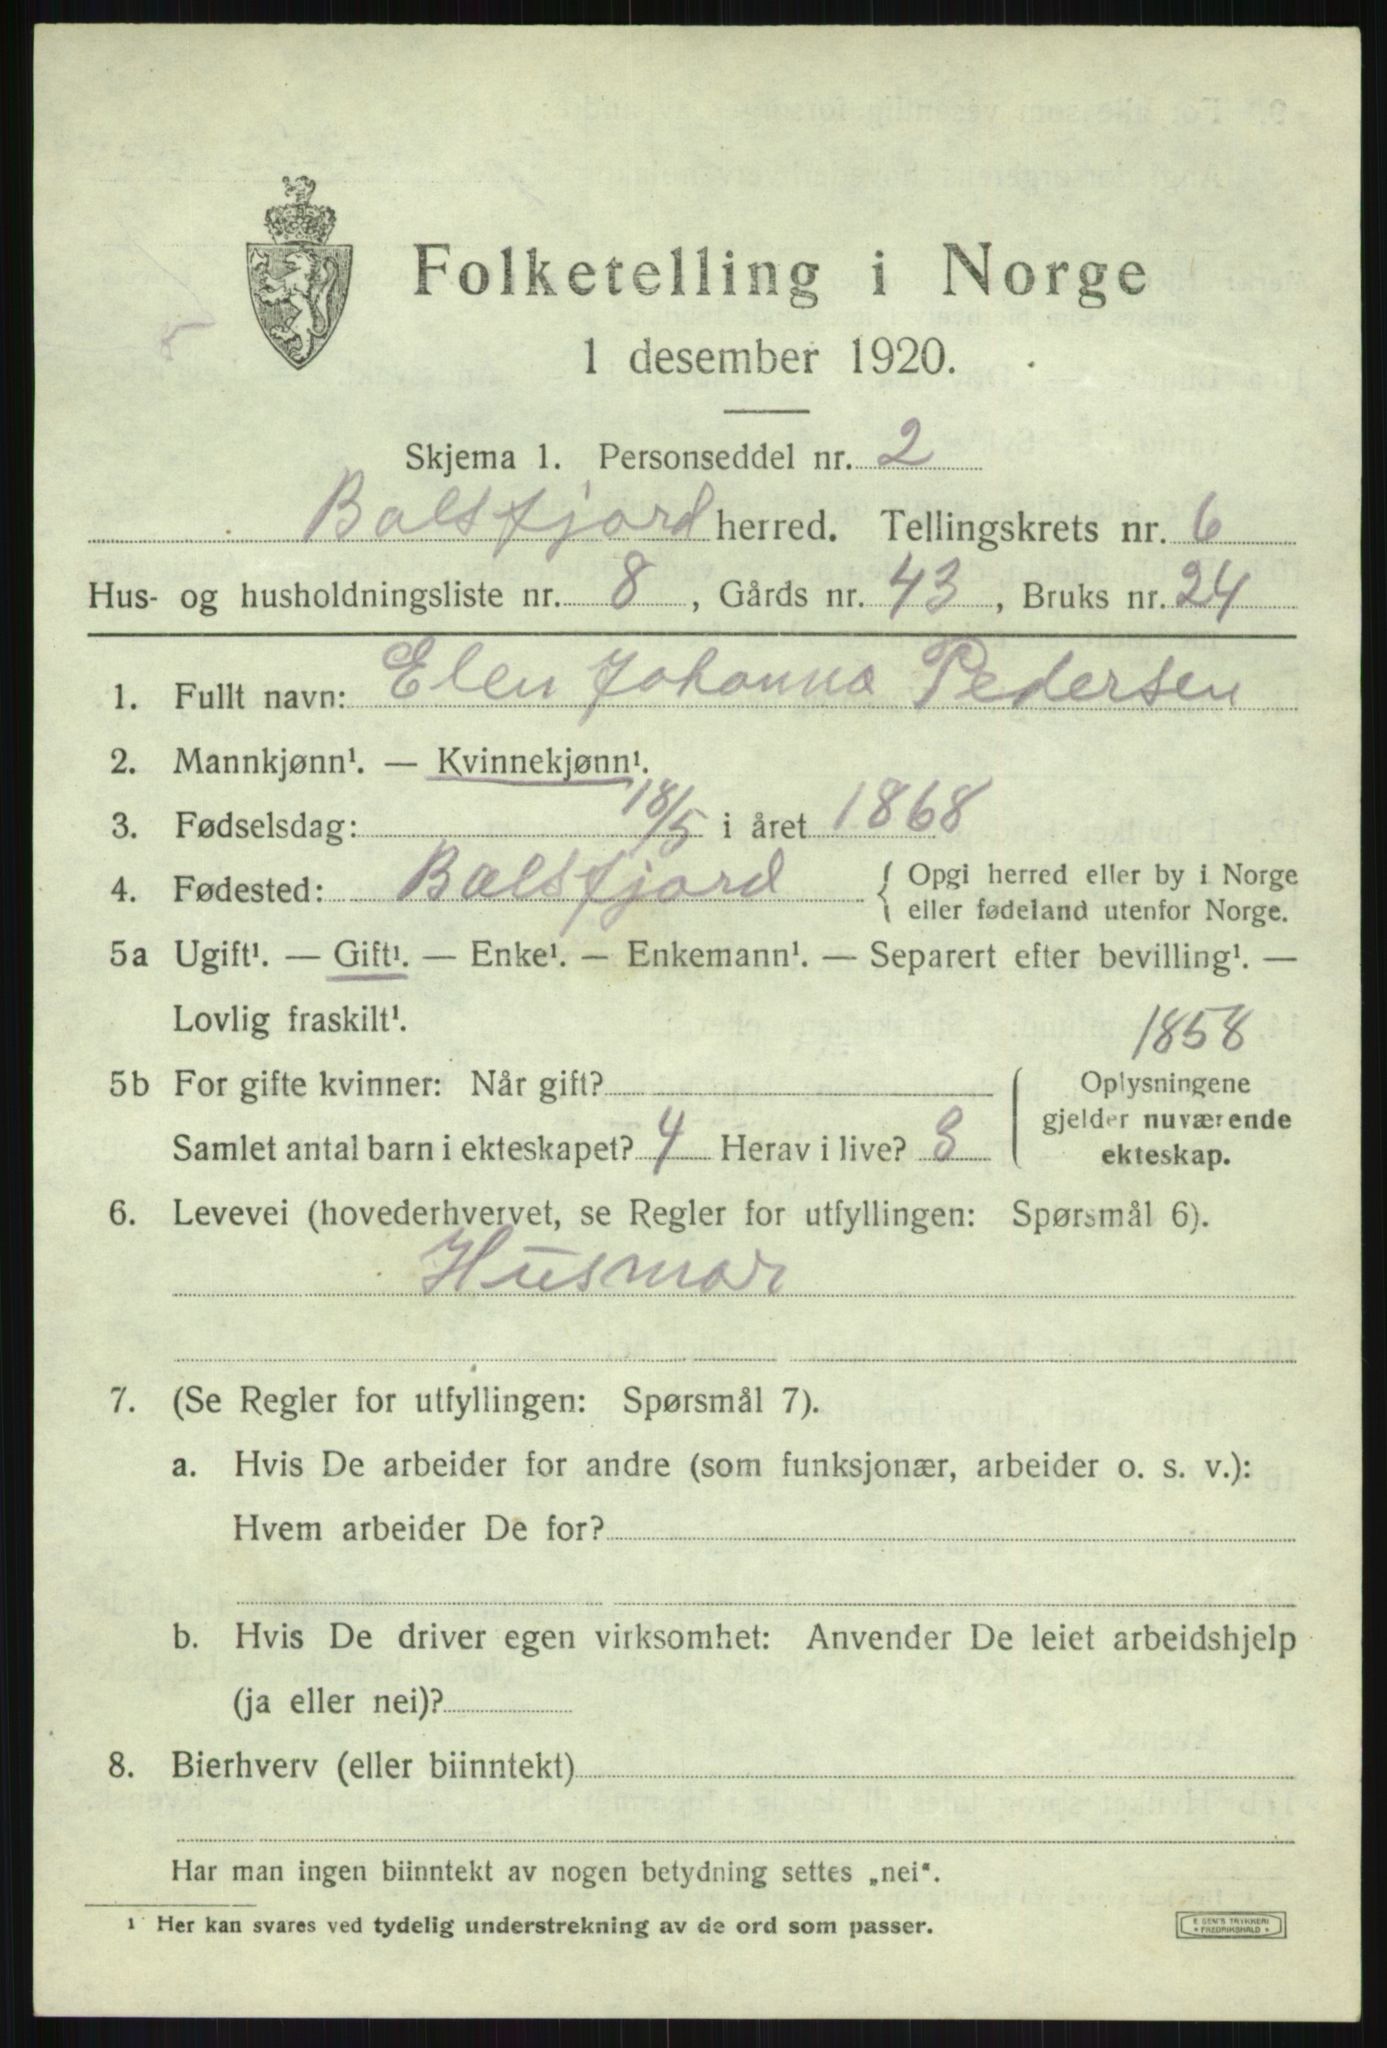 Folketelling i Norge
1 desember 1920.
Skjema 1. Personseddel nr. 2
Balsfjord herred. Tellingskrets nr. 6
Hus- og husholdningsliste nr. 8, Gårds nr. 43, Bruks nr. 24
1. Fullt navn: Elen Johanna Pedersen
2. Mannkjønn¹. — Kvinnekjønn¹.
3. Fødselsdag: 18/5 i året 1868
4. Fødested: Balsfjord { Opgi herred eller by i Norge
eller fødeland utenfor Norge.
5a Ugift¹. — Gift¹. — Enke¹. — Enkemann¹. — Separert efter bevilling¹. —
Lovlig fraskilt¹.
1858
5b For gifte kvinner: Når gift? { Oplysningene
gjelder nuværende
Samlet antal barn i ekteskapet? 4 Herav i live? 3 ekteskap.
6. Levevei (hovederhvervet, se Regler for utfyllingen: Spørsmål 6).
Husmor
7. (Se Regler for utfyllingen: Spørsmål 7).
a. Hvis De arbeider for andre (som funksjonær, arbeider o. s. v.):
Hvem arbeider De for?
b. Hvis De driver egen virksomhet: Anvender De leiet arbeidshjelp
(ja eller nei)?
8. Bierhverv (eller biinntekt)
Har man ingen biinntekt av nogen betydning settes „nei“.
¹ Her kan svares ved tydelig understrekning av de ord som passer.
TRYKKERI
FREDRIKSHALD